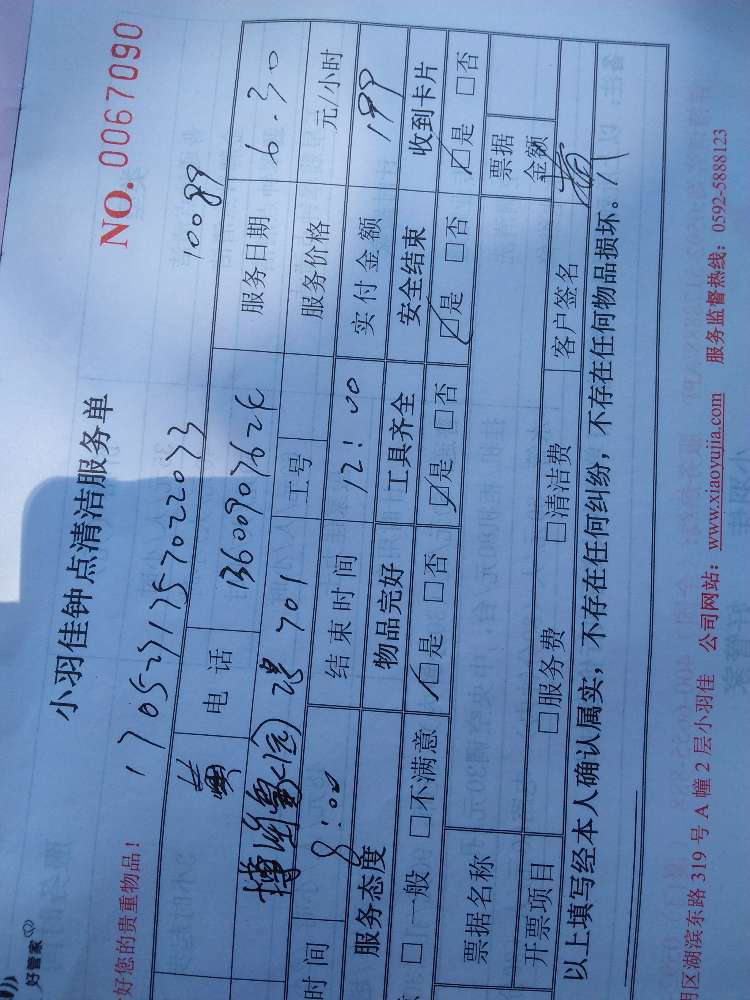 好管家
小羽佳钟点清洁服务单
NO. 0067090
好您的贵重物品!
1705271757022073
10089
黄 电话 1360090762 服务日期 6.30
701 工号 服务价格 元/小时
时间 8:00 结束时间 12:00 实付金额 199
服务态度 物品完好 工具齐全 安全结束 收到卡片
□一般 □不满意 □是 □否 □是 □否 □是 □否 □是 □否
票据名称 票据金额
开票项目 □服务费 □清洁费 客户签名
以上填写经本人确认属实,不存在任何纠纷,不存在任何物品损坏。
区湖滨东路 319 号 A 幢 2 层小羽佳 公司网站:www.xiaoyujia.com 服务监督热线:0592-5888123